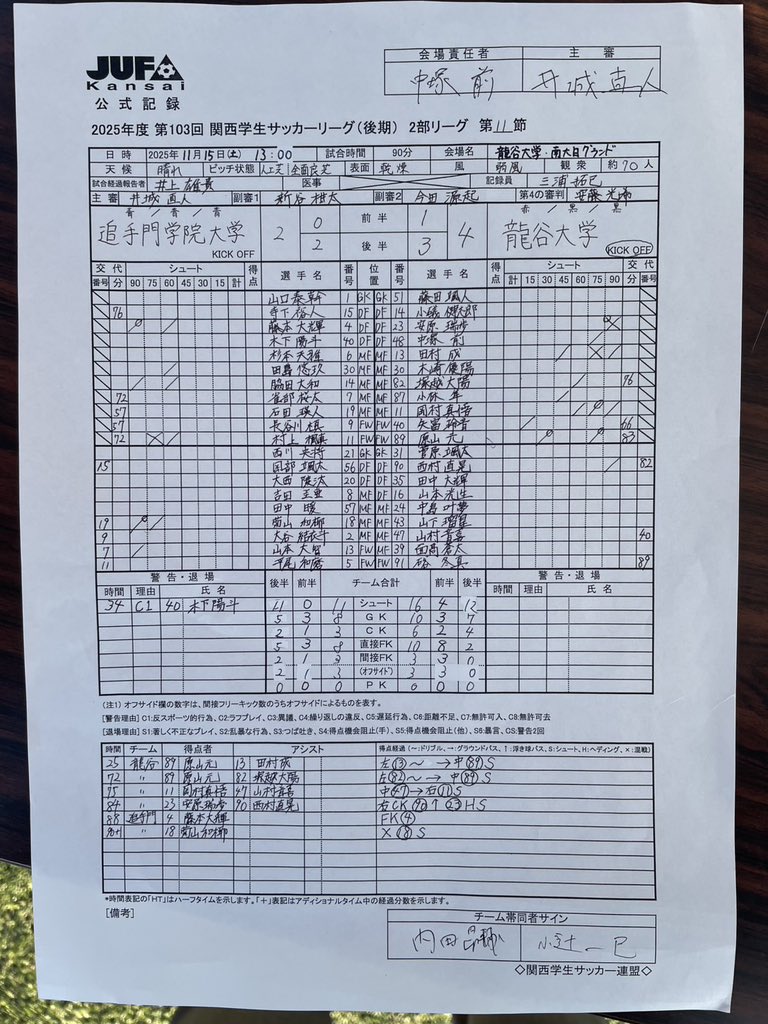 会場責任者 主審
中塚 前 井城 直人
JUFA
Kansai
公式記録
2025年度 第103回 関西学生サッカーリーグ(後期) 2部リーグ 第11節
日時 2025年11月15日(土) 13:00 試合時間 90分 会場名 龍谷大学・南大日グランド
天候 晴れ ピッチ状態 人工芝 全面良芝 表面 乾燥 風 弱風 観衆 約70人
試合経過報告者 井上 雄貴 医事 記録員 三浦 拓巳
主審 井城 直人 副審1 新谷 柑太 副審2 今田 第4の審判 安藤
青 / 青 / 青 赤 / 黒 / 黒
追手門学院大学 2 0 前半 1 4 龍谷大学
KICK OFF 2 後半 3 KICK OFF
交代 シュート 得点 選手名 番号 位置 番号 選手名 得点 シュート 交代
番号 分 90 75 60 45 30 15 計 計 15 30 45 60 75 90 分 番号
山口 泰幹 1 GK GK 51 藤田 颯人
76 寺下 裕人 15 DF DF 14 小礒
藤本 大輝 4 DF DF 23 安原 瑞歩
木下 陽斗 40 DF DF 48 中塚 前
杉本 天雅 6 MF MF 13 田村 成
田島 悠玖 30 MF MF 30 木崎 健陽
脇田 大和 14 MF MF 82 塚越 大陽 76
72 雀部 桜太 7 MF MF 87 小林 隼
57 石田 瑛人 19 MF MF 11 岡村 真悟
57 長谷川 雄真 9 FW FW 40 矢富 66
72 村上 楓真 11 FW FW 89 原山 元 83
西川 21 GK GK 31 菅原 颯太
15 国部 颯太 56 DF DF 90 西村 直晃 82
大西 陵汰 20 DF DF 35 田中 大輝
吉田 8 MF DF 16 山本
田中 暖 57 MF MF 24 中島 叶夢
19 菊山 和椰 18 MF MF 43 山下 瑠星
9 大谷 結衣斗 2 MF MF 47 山村 青喜 40
7 山本 大智 13 FW MF 39 西高 蒼太
11 平尾 和磨 5 FW FW 91 冬真 89
警告・退場 後半 前半 チーム合計 前半 後半 警告・退場
時間 理由 氏名 時間 理由 氏名
34 C1 40 木下陽斗 11 0 11 シュート 16 4 12
5 3 8 GK 10 3 7
2 1 3 CK 6 2 4
5 3 8 直接FK 10 8 2
2 1 3 間接FK 3 3 0
2 1 3 (オフサイド) 3 3 0
0 0 0 PK 0 0 0
(注1) オフサイド欄の数字は、間接フリーキック数のうちオフサイドによるものを表す。
[警告理由] C1:反スポーツ的行為、C2:ラフプレイ、C3:異議、C4:繰り返しの違反、C5:遅延行為、C6:距離不足、C7:無許可入、C8:無許可去
[退場理由] S1:著しく不正なプレイ、S2:乱暴な行為、S3:つば吐き、S4:得点機会阻止(手)、S5:得点機会阻止(他)、S6:暴言、CS:警告2回
時間 チーム 得点者 アシスト 得点経過 (～:ドリブル、→:グラウンドパス、↑:浮き球パス、S:シュート、H:ヘディング、×:混戦)
25 龍谷 89 原山元 13 田村成 左⑬～ → 中(89)S
72 〃 89 原山元 82 塚越大陽 左(82)～ → 中(89)S
75 〃 11 岡村真悟 47 山村青喜 中(47)→右⑪S
84 〃 23 安原瑞歩 90 西村直晃 右CK(90)↑㉓HS
88 追手門 4 藤本大輝 FK④
90+1 〃 18 菊山和椰 ×⑱S
*時間表記の「HT」はハーフタイムを示します。「+」表記はアディショナルタイム中の経過分数を示します。
[備考]
チーム帯同者サイン
内田 小辻 一巳
◇関西学生サッカー連盟◇